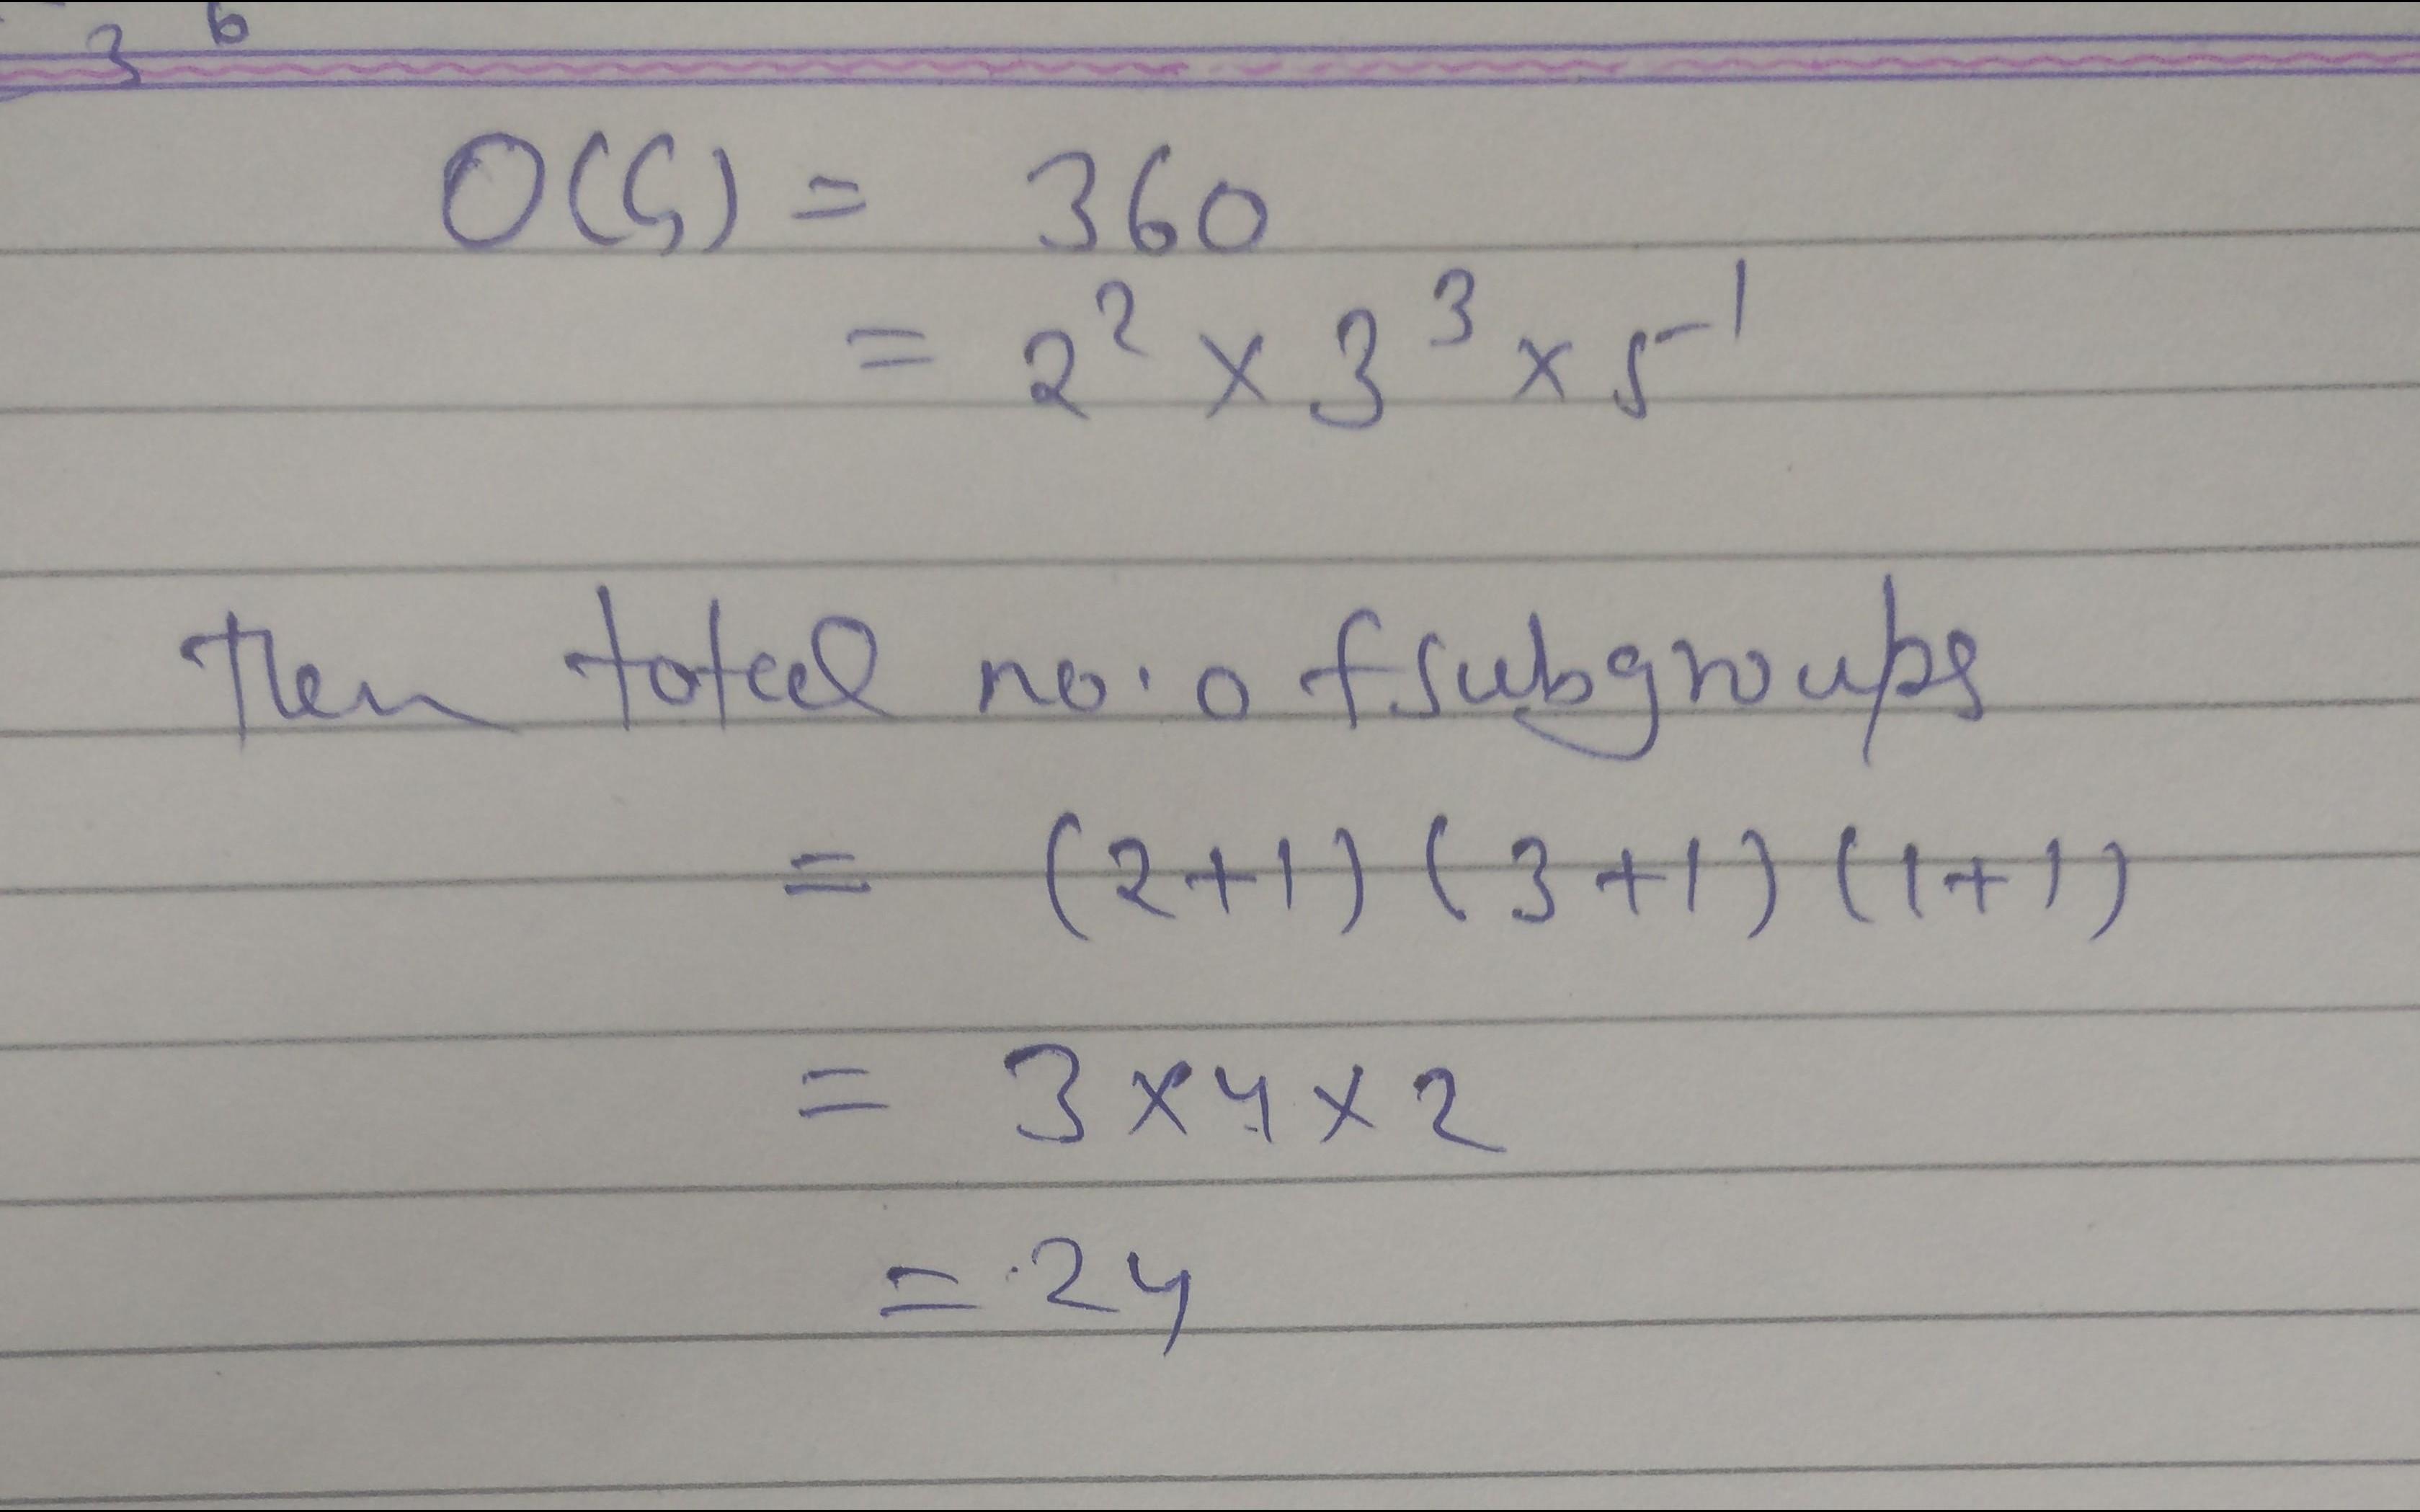 3 6
O(G) = 360
= 2² × 3³ × 5¹
Then total no. of subgroups
= (2+1) (3+1) (1+1)
= 3 × 4 × 2
= 24